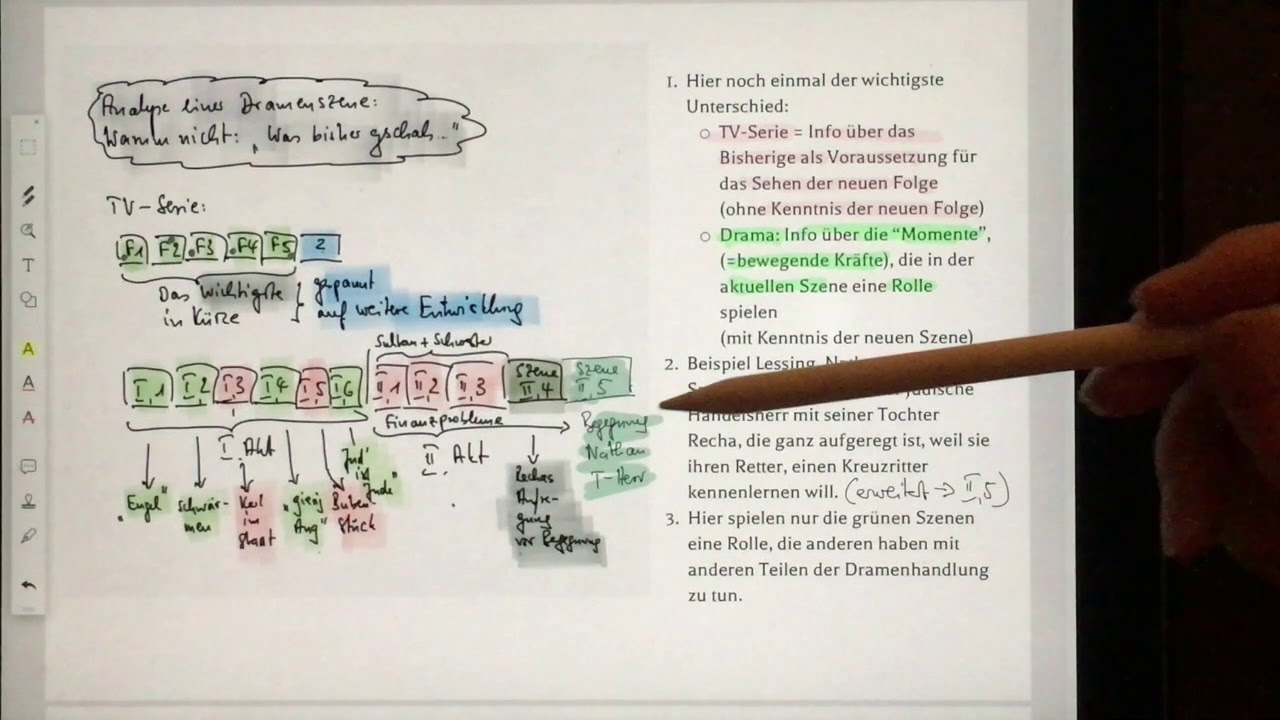 Analyse einer Dramenszene:
Warum nicht: „Was bisher gschah..."
TV-Serie:
F1 F2 F3 F4 F5 2
Das wichtigste
in Kürze
gespannt
auf weitere Entwicklung
Sultan + Schwester
I,1 I,2 I,3 I,4 I,5 I,6 II,1 II,2 II,3 Szene II,4 Szene II,5
Finanzprobleme
I. Akt
II. Akt
"Engel"
schwär-
men
Kerl
im
Staat
"gierig
Aug"
Buben
Stück
"Jud'
ist
Jude"
Rechas
Aufre-
gung
vor Begegnung
Begegnung
Nathan
T-Herr
1. Hier noch einmal der wichtigste
Unterschied:
○ TV-Serie = Info über das
Bisherige als Voraussetzung für
das Sehen der neuen Folge
(ohne Kenntnis der neuen Folge)
○ Drama: Info über die “Momente”,
(=bewegende Kräfte), die in der
aktuellen Szene eine Rolle
spielen
(mit Kenntnis der neuen Szene)
2. Beispiel Lessing,
jüdische
Handelsherr mit seiner Tochter
Recha, die ganz aufgeregt ist, weil sie
ihren Retter, einen Kreuzritter
kennenlernen will. (erweitert → II,5)
3. Hier spielen nur die grünen Szenen
eine Rolle, die anderen haben mit
anderen Teilen der Dramenhandlung
zu tun.